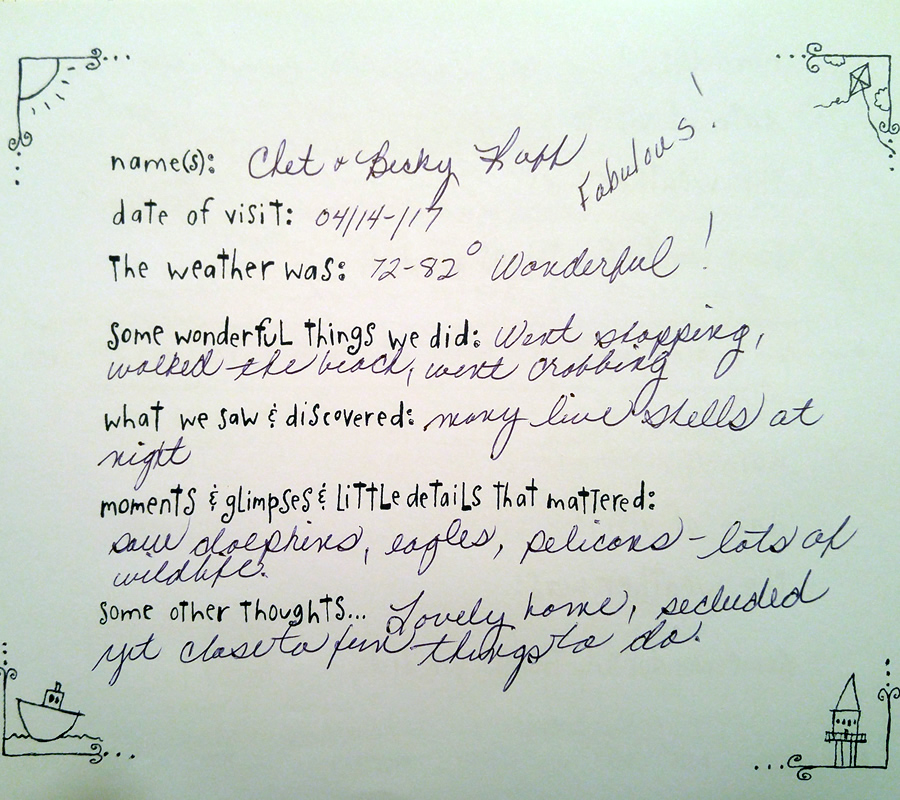 name(s): Chet & Becky
Fabulous!
date of visit: 04/14-/17
The weather was: 72-82° Wonderful!
some wonderful things we did: Went shopping,
walked the beach, went crabbing
what we saw & discovered: many live shells at
night
moments & glimpses & little details that mattered:
saw dolphins, eagles, pelicans - lots of
wildlife.
some other thoughts... Lovely home, secluded
yet close to fun things to do.